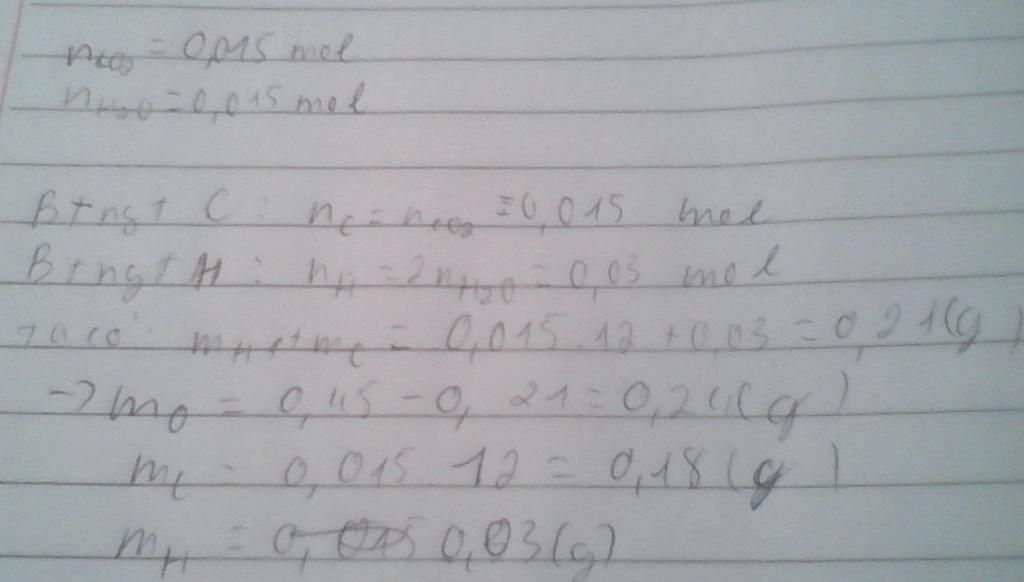 nCO2 = 0,015 mol
nH2O = 0,015 mol
BTngt C : nC = nCO2 = 0,015 mol
BTngt H : nH = 2nH2O = 0,03 mol
Ta có: mH + mC = 0,015.12 + 0,03 = 0,21(g)
-> mO = 0,45 - 0,21 = 0,24(g)
mC = 0,015 12 = 0,18(g)
mH = 0,03(g)